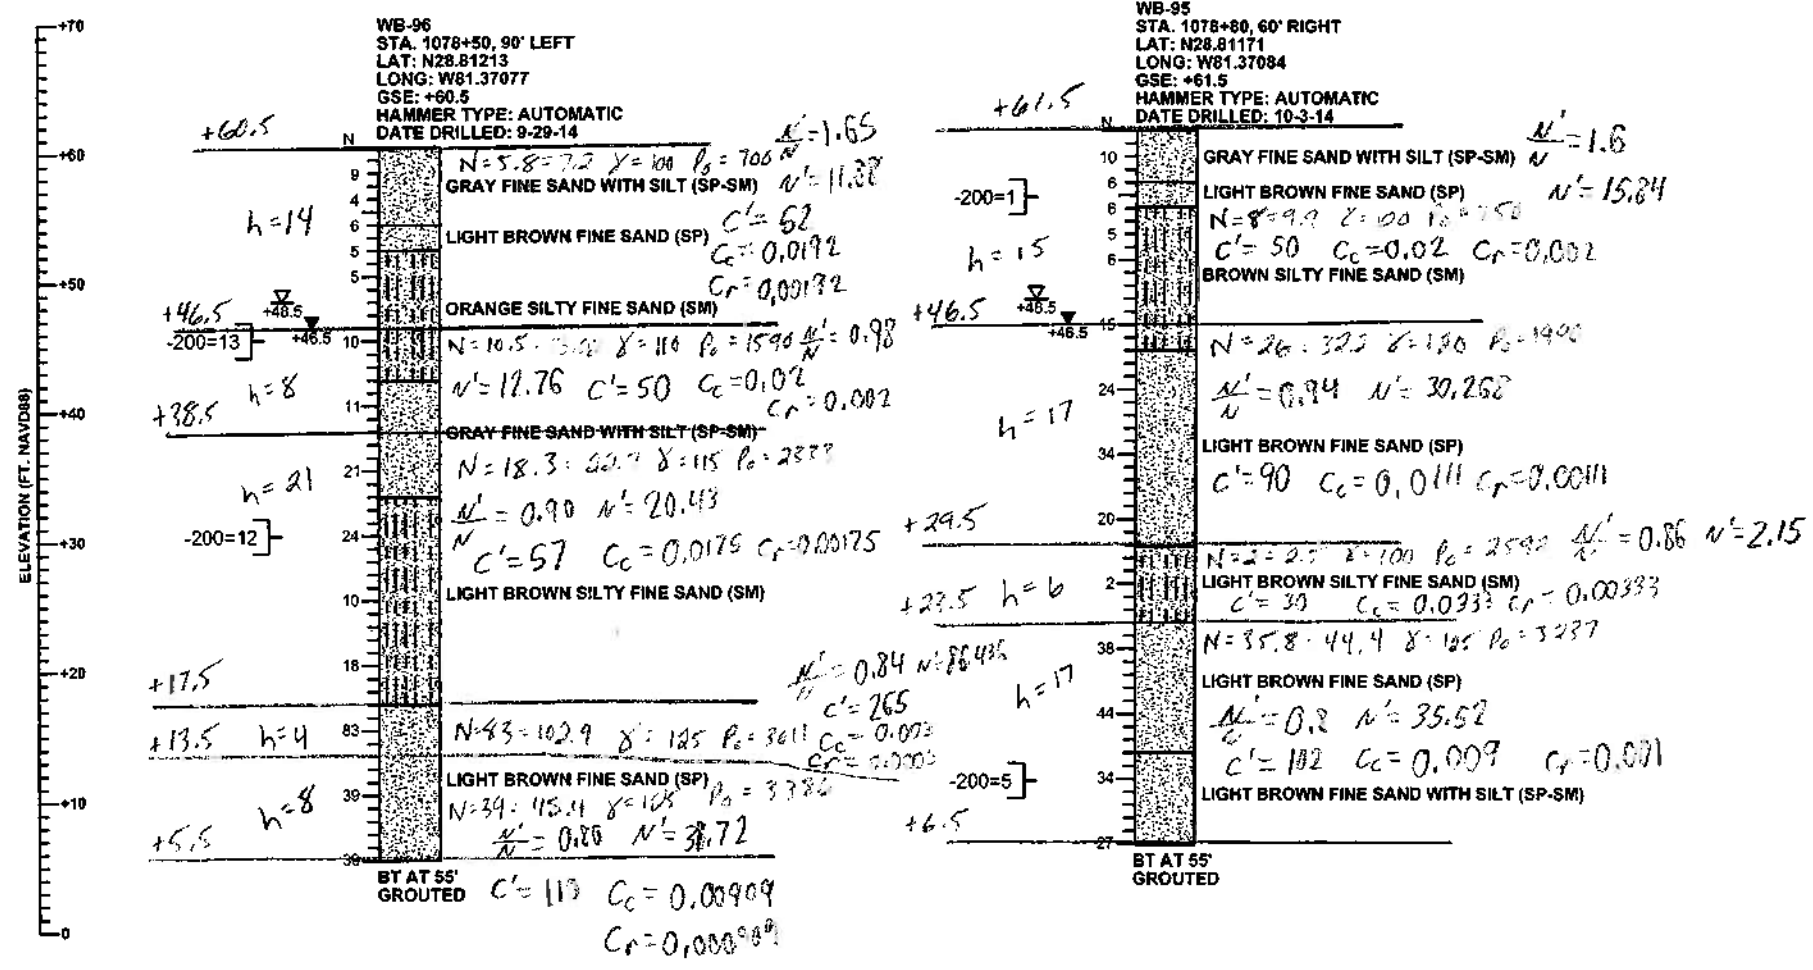 ELEVATION (FT. NAVD88)
+70
+60
+50
+40
+30
+20
+10
0
WB-96
STA. 1078+50, 90' LEFT
LAT: N28.81213
LONG: W81.37077
GSE: +60.5
HAMMER TYPE: AUTOMATIC
DATE DRILLED: 9-29-14
N
+60.5
N'/N = 1.65
N=5.8=7.2 γ=100 P₀=700
GRAY FINE SAND WITH SILT (SP-SM)
N'=11.88
9
4
6
5
5
h=14
C'=52
LIGHT BROWN FINE SAND (SP)
Cc=0.0192
Cr=0.00192
ORANGE SILTY FINE SAND (SM)
+46.5
+48.5
+46.5
-200=13
10
N=10.5 γ=110 P₀=1590 N'/N=0.98
N'=12.76 C'=50 Cc=0.02
Cr=0.002
h=8
11
+38.5
GRAY FINE SAND WITH SILT (SP-SM)
N=18.3=22.7 γ=115 P₀=2333
21
h=21
N'/N=0.90 N'=20.43
-200=12
24
C'=57 Cc=0.0175 Cr=0.00175
10
LIGHT BROWN SILTY FINE SAND (SM)
18
+17.5
N'/N=0.84 N'=86.436
C'=265
+13.5 h=4
83
N=83=102.9 γ=125 P₀=3611 Cc=0.003
LIGHT BROWN FINE SAND (SP)
39
h=8
N=39=45.4 P₀=3386
N'/N=0.80 N'=38.72
+5.5
39
BT AT 55'
GROUTED
C'=110 Cc=0.00909
Cr=0.000909
WB-95
STA. 1078+80, 60' RIGHT
LAT: N28.81171
LONG: W81.37084
GSE: +61.5
HAMMER TYPE: AUTOMATIC
DATE DRILLED: 10-3-14
N
+61.5
N'/N=1.6
10
GRAY FINE SAND WITH SILT (SP-SM)
6
-200=1
LIGHT BROWN FINE SAND (SP)
N'=15.84
6
N=8=9.9 γ=100 P₀=750
5
C'=50 Cc=0.02 Cr=0.002
h=15
6
BROWN SILTY FINE SAND (SM)
+46.5
+48.5
+46.5
15
N=26=32.2 γ=120 P₀=1990
24
N'/N=0.94 N'=30.268
h=17
LIGHT BROWN FINE SAND (SP)
34
C'=90 Cc=0.0111 Cr=0.00111
20
+29.5
N=2=2.5 γ=100 P₀=2592 N'/N=0.86 N'=2.15
2
LIGHT BROWN SILTY FINE SAND (SM)
+23.5 h=6
C'=30 Cc=0.0333 Cr=0.00333
38
N=35.8=44.4 γ=125 P₀=3237
LIGHT BROWN FINE SAND (SP)
h=17
44
N'/N=0.8 N'=35.52
C'=102 Cc=0.009 Cr=0.001
-200=5
34
LIGHT BROWN FINE SAND WITH SILT (SP-SM)
+6.5
27
BT AT 55'
GROUTED